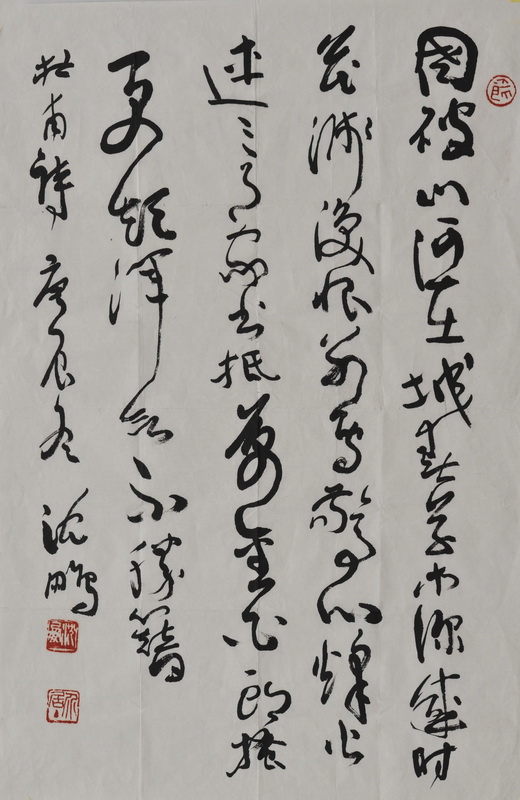 國破山河在城春草木深感时
花濺淚恨别鸟驚心烽火
連三月家书抵萬金白头搔
更短渾欲不勝簪
杜甫詩 庚辰冬 沈鹏